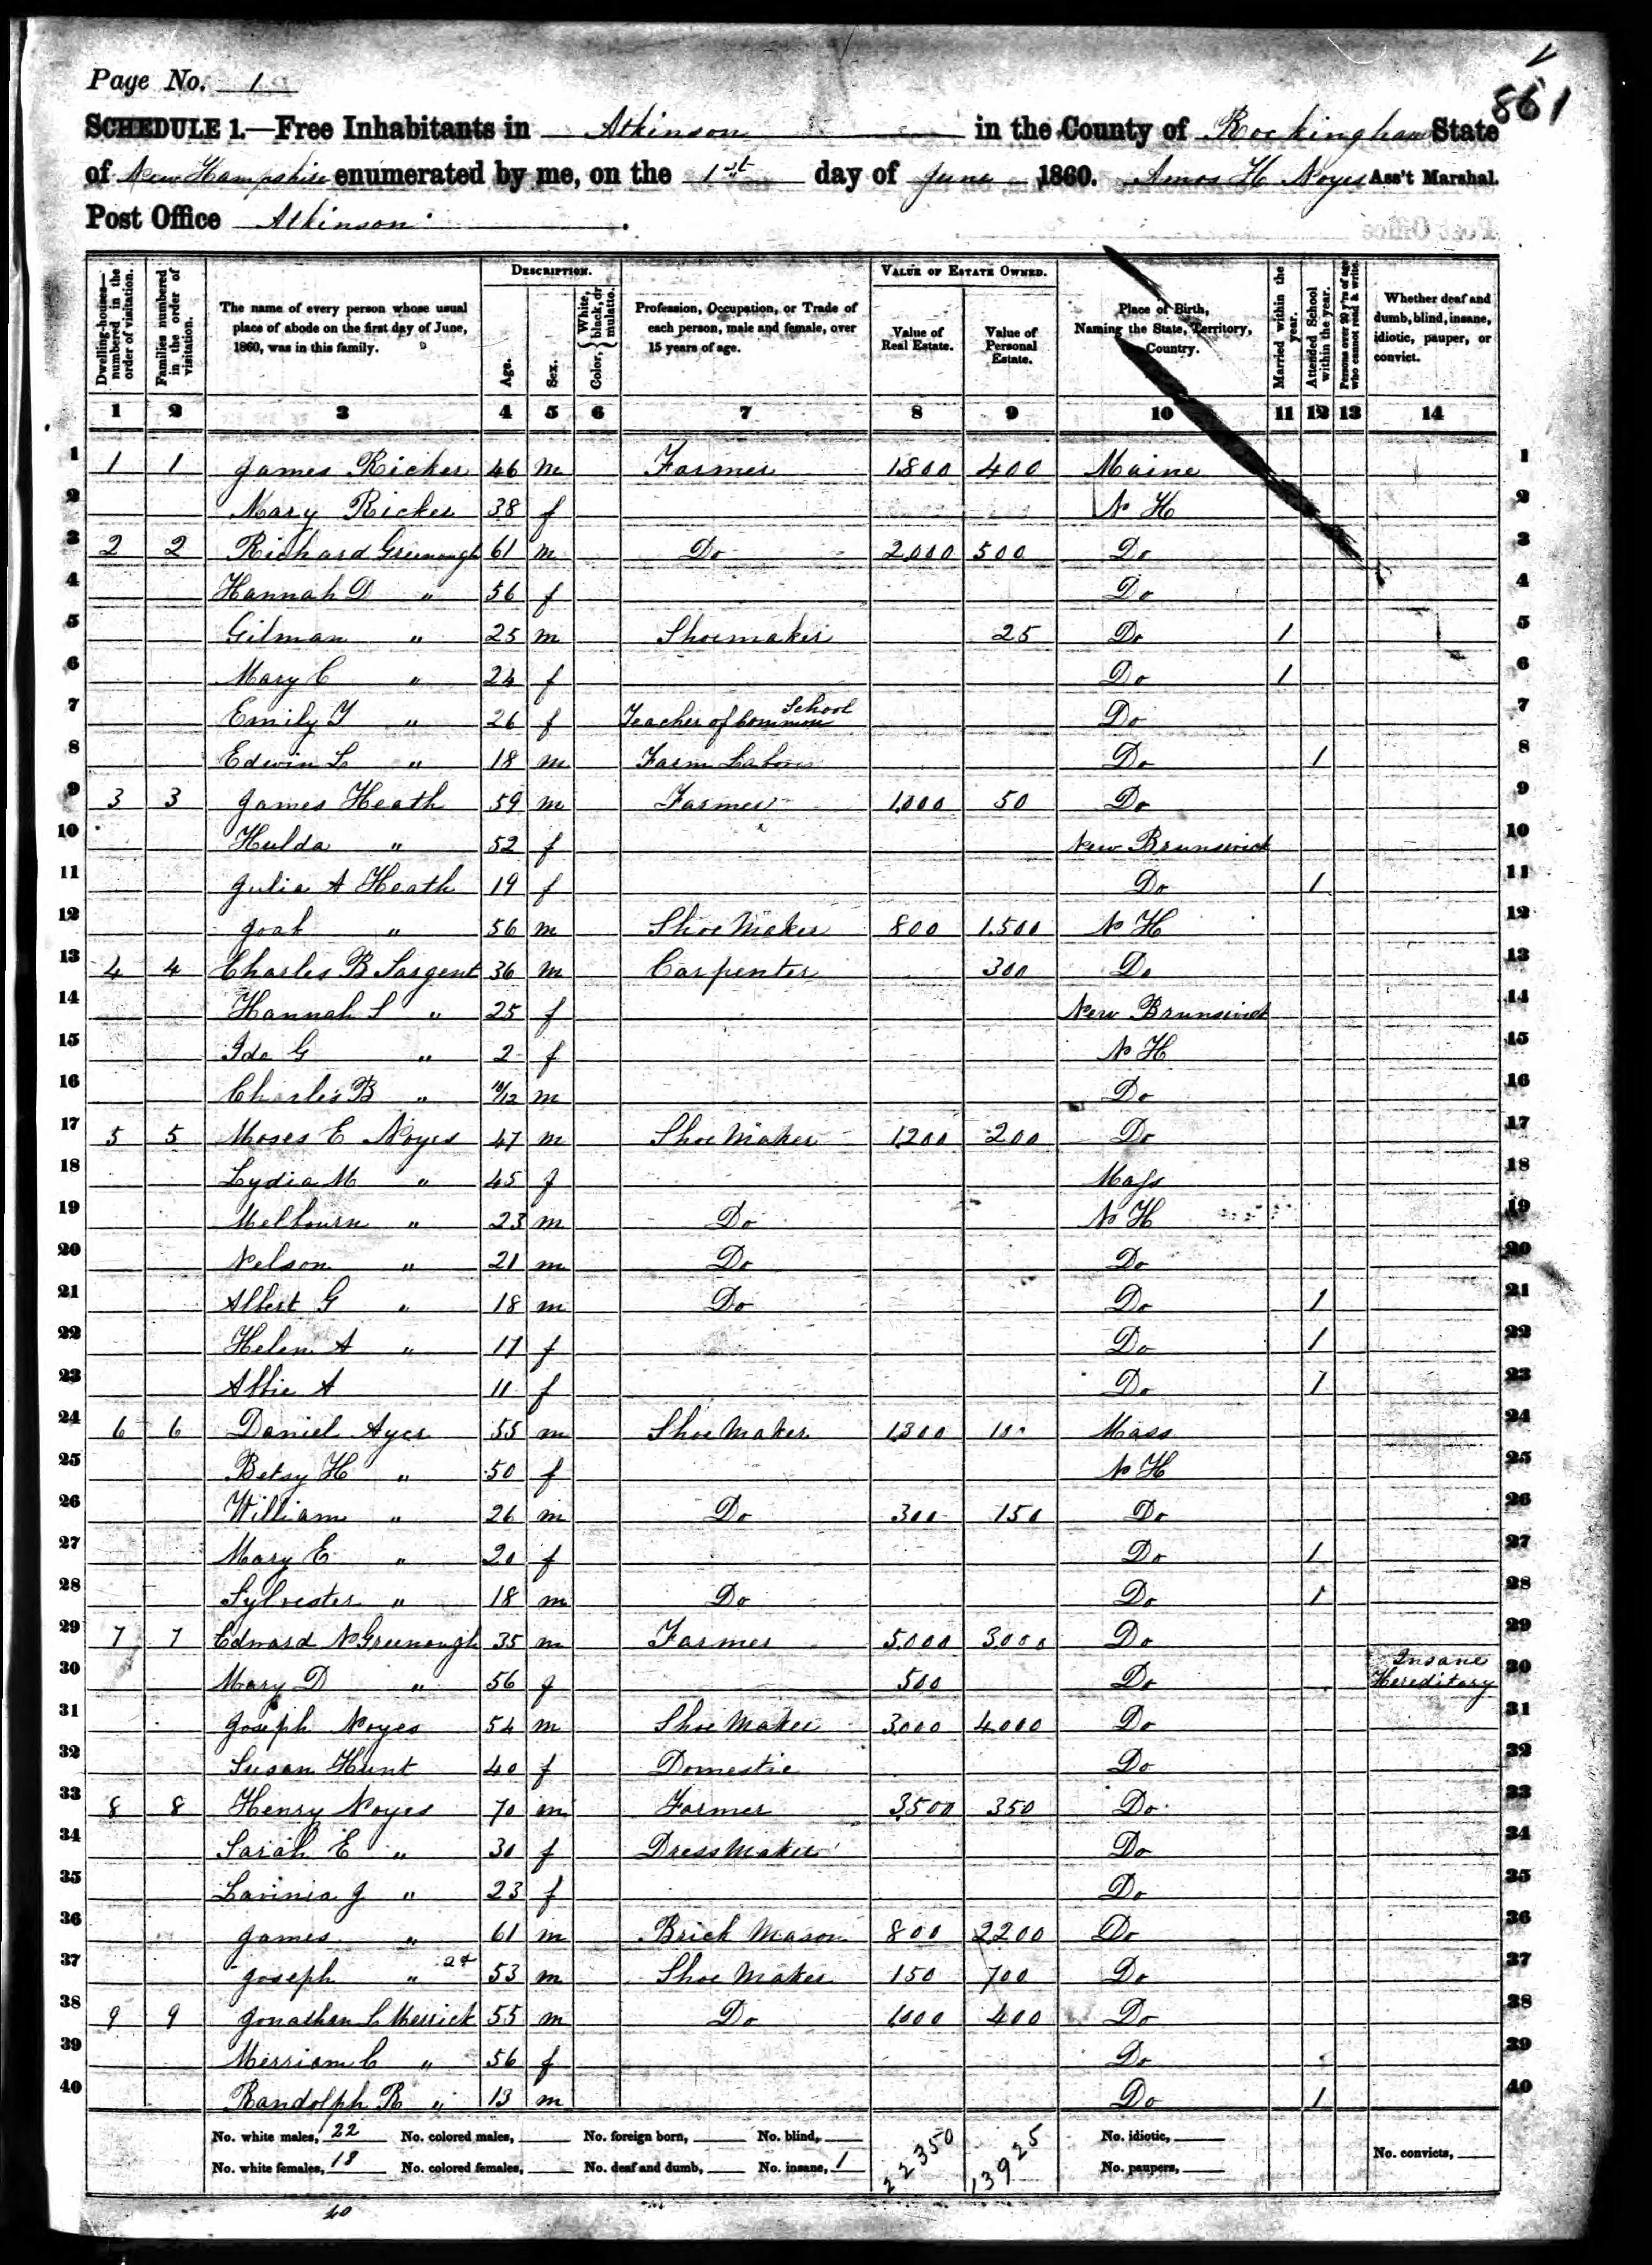 Page No. 1
861
SCHEDULE 1.—Free Inhabitants in Atkinson in the County of Rockingham State
of New Hampshire enumerated by me, on the 1st day of June 1860. Amos H Noyes Ass't Marshal.
Post Office Atkinson.
DESCRIPTION. VALUE OF ESTATE OWNED.
Dwelling-houses—numbered in the order of visitation. Families numbered in the order of visitation. The name of every person whose usual place of abode on the first day of June, 1860, was in this family. Age. Sex. Color, { White, black, or mulatto. Profession, Occupation, or Trade of each person, male and female, over 15 years of age. Value of Real Estate. Value of Personal Estate. Place of Birth, Naming the State, Territory, Country. Married within the year. Attended School within the year. Persons over 20 y'rs of age who cannot read & write. Whether deaf and dumb, blind, insane, idiotic, pauper, or convict.
1 2 3 4 5 6 7 8 9 10 11 12 13 14
1 1 1 James Ricker 46 m Farmer 1.800 400 Maine 1
2 Mary Ricker 38 f N H 2
3 2 2 Richard Greenough 61 m Do 2.000 500 Do 3
4 Hannah D " 56 f Do 4
5 Gilman " 25 m Shoemaker 25 Do 1 5
6 Mary C " 24 f Do 1 6
7 Emily Y " 26 f Teacher of Common School Do 7
8 Edwin L " 18 m Farm Labor Do 1 8
9 3 3 James Heath 59 m Farmer 1.000 50 Do 9
10 Hulda " 52 f New Brunswick 10
11 Julia A Heath 19 f Do 1 11
12 Joab " 56 m Shoe Maker 800 1.500 N H 12
13 4 4 Charles B Sargent 36 m Carpenter 300 Do 13
14 Hannah S " 25 f New Brunswick 14
15 Ida G " 2 f N H 15
16 Charles B " 10/12 m Do 16
17 5 5 Moses E Noyes 47 m Shoe Maker 1.200 200 Do 17
18 Lydia M " 45 f Mass 18
19 Melbourn " 23 m Do N H 19
20 Nelson " 21 m Do Do 20
21 Albert G " 18 m Do Do 1 21
22 Helen A " 17 f Do 1 22
23 Abbie A 11 f Do 1 23
24 6 6 Daniel Ayer 55 m Shoe Maker 1.300 100 Mass 24
25 Betsy H " 50 f N H 25
26 William " 26 m Do 300 150 Do 26
27 Mary E " 20 f Do 1 27
28 Sylvester " 18 m Do Do 1 28
29 7 7 Edward N Greenough 35 m Farmer 5.000 3.000 Do 29
30 Mary D " 56 f 500 Do Insane Hereditary 30
31 Joseph Noyes 54 m Shoe Maker 3.000 4.000 Do 31
32 Susan Hunt 40 f Domestic Do 32
33 8 8 Henry Noyes 70 m Farmer 3.500 350 Do 33
34 Sarah E " 30 f Dress Maker Do 34
35 Lavinia J " 23 f Do 35
36 James " 61 m Brick Mason 800 2.200 Do 36
37 Joseph " 2d 53 m Shoe Maker 150 700 Do 37
38 9 9 Jonathan L Merrick 55 m Do 1.000 400 Do 38
39 Merriam C " 56 f Do 39
40 Randolph R " 13 m Do 1 40
No. white males, 22 No. colored males, No. foreign born, No. blind, 22350 13925 No. idiotic,
No. white females, 18 No. colored females, No. deaf and dumb, No. insane, 1 No. paupers, No. convicts,
40